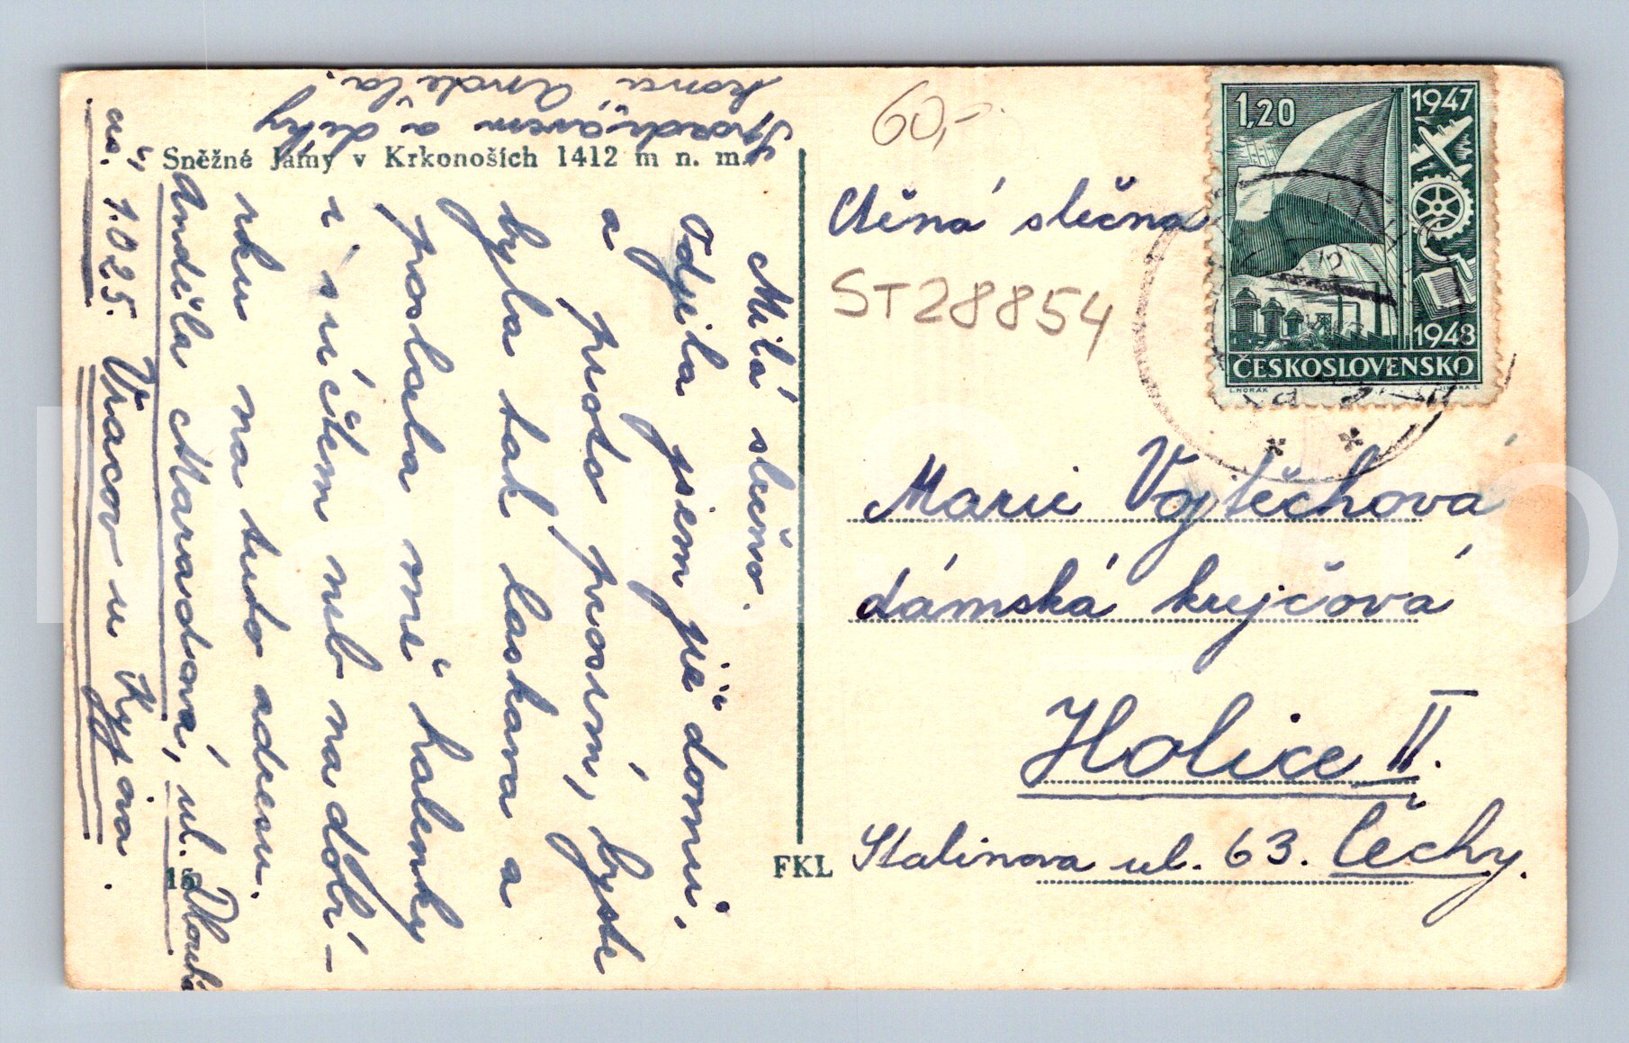 Sněžné Jámy v Krkonoších 1412 m n. m.
Milá slečno.
Odjela jsem již domů,
a proto prosím, byste
byla tak laskava a
poslala mě halenky
i s účtem neb na dobí-
rku na tuto adresu.
Anděla Maradová, ul. Dlouhá
čís. 1.025. Vracov u Kyjova.
S pozdravem a díky
Anděla.
15
FKL
60,-
Ctěná slečna
ST28854
Marie Vojtěchová
dámská krejčová
Holice II.
Stalinova ul. 63. Čechy.
1,20
1947
1948
ČESKOSLOVENSKO